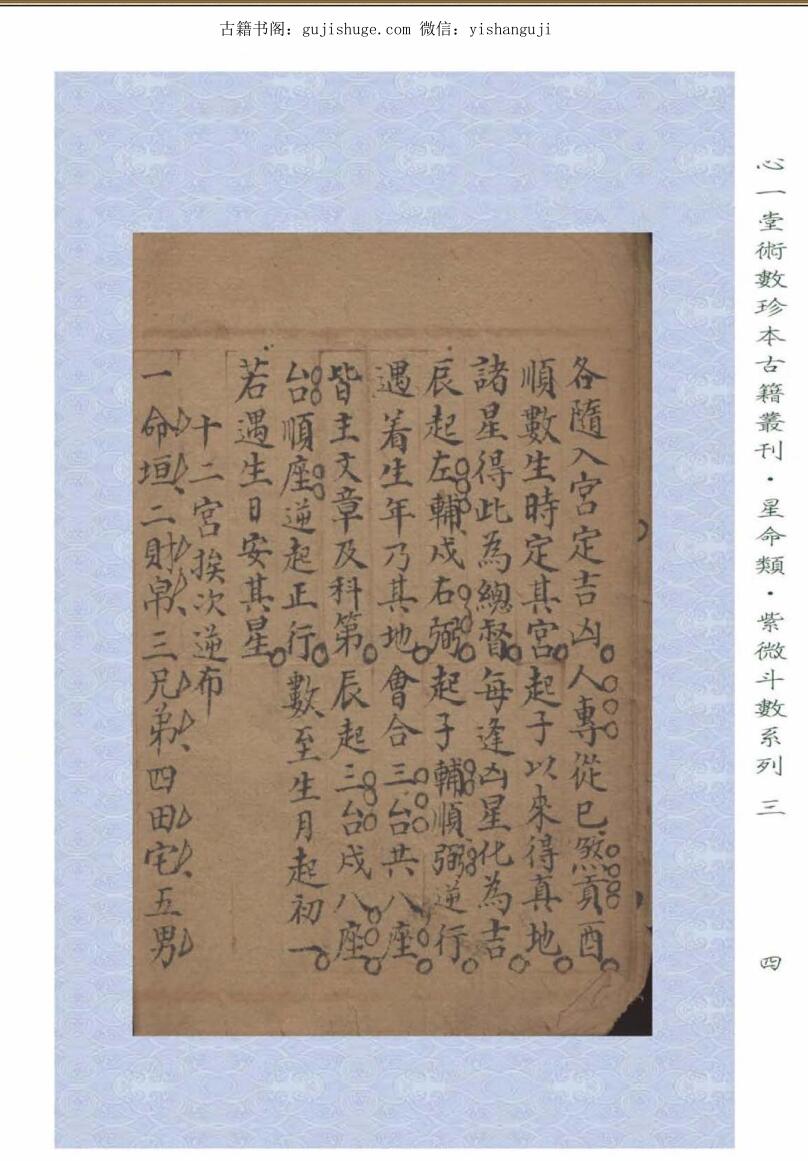 古籍书阁：gujishuge.com 微信：yishanguji
心一堂術數珍本古籍叢刊·星命類·紫微斗數系列 三
四
各隨入宮定吉凶人專從巳煞貢酉
順數生時定其宮起子以來得真地
諸星得此為總督每逢凶星化為吉
辰起左輔戍右弼起子輔順弼逆行
遇着生年乃其地會合三台共八座
皆主文章及科第辰起三台戍八座
台順座逆起正行數至生月起初一
若遇生日安其星
十二宮挨次逆布
一命垣二財帛三兄弟四田宅五男